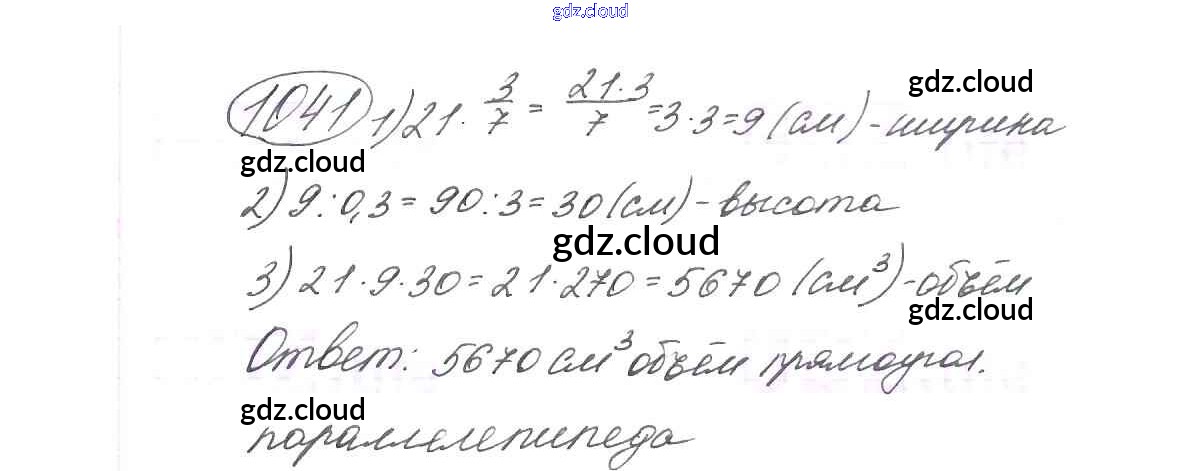 gdz.cloud
gdz.cloud
1041 1) 21 · 3/7 = 21·3/7 = 3·3=9 (см) - ширина
gdz.cloud
2) 9:0,3 = 90:3 = 30 (см) - высота
gdz.cloud
3) 21·9·30 = 21·270 = 5670 (см³) - объём
gdz.cloud
Ответ: 5670 см³ объём прямоугол.
gdz.cloud
параллелепипеда